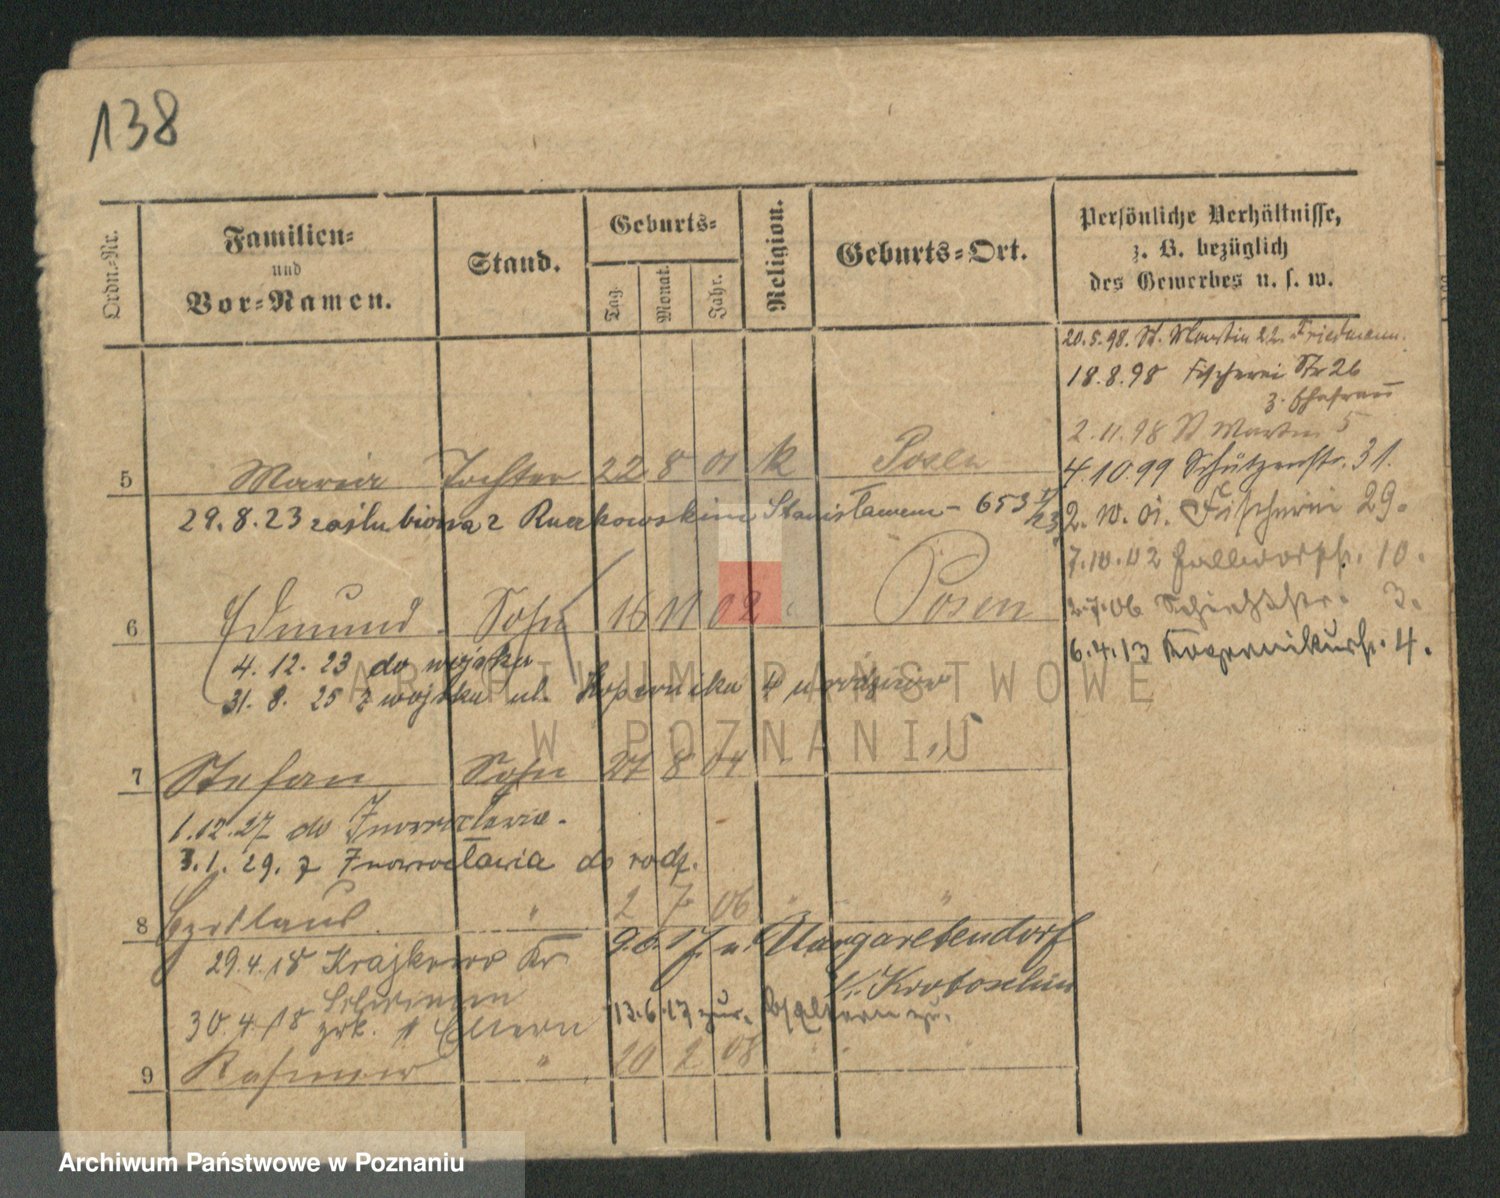 138
Ordn.-Nr.
Familien-
und
Vor-Namen.
Stand.
Geburts-
Tag.
Monat.
Jahr.
Religion.
Geburts-Ort.
Persönliche Verhältnisse,
z. B. bezüglich
des Gewerbes u. s. w.
20.5.98. St. Martin 22. Friedmann.
18.8.98 Fischerei Str 26
z. Ehefrau
2.11.98 St Martin 5
4.10.99 Schützenstr. 31.
2.10.01. Fischerei 29.
7.10.02 Halldorfstr. 10.
2.7.06 Schießstr. 3.
6.4.13 Kopernikusstr. 4.
5 Maria Tochter 22 8 01 k Posen
29.8.23 zaślubiona z Stanisławem - 653
6 Edmund Sohn 16 11 02 Posen
4.12.23 do wojska
31.8.25 z wojska ul. Kopernika 4 u rodziców
7 Stefan Sohn 27 8 04
1.12.27 do Inowrocławia.
3.1.29. z Inowrocławia do rodz.
8 " 2 7 06 " "
9.6.17. n. Margaretendorf
Kr. Krotoschin
29.4.18 Krajkowo Kr.
Schrimm
13.6.17 zur. v/ Eltern zu.
30.4.18 zrk. Eltern
9 Kasimir " 20 2 08 " "
ARCHIWUM PAŃSTWOWE
W POZNANIU
Archiwum Państwowe w Poznaniu